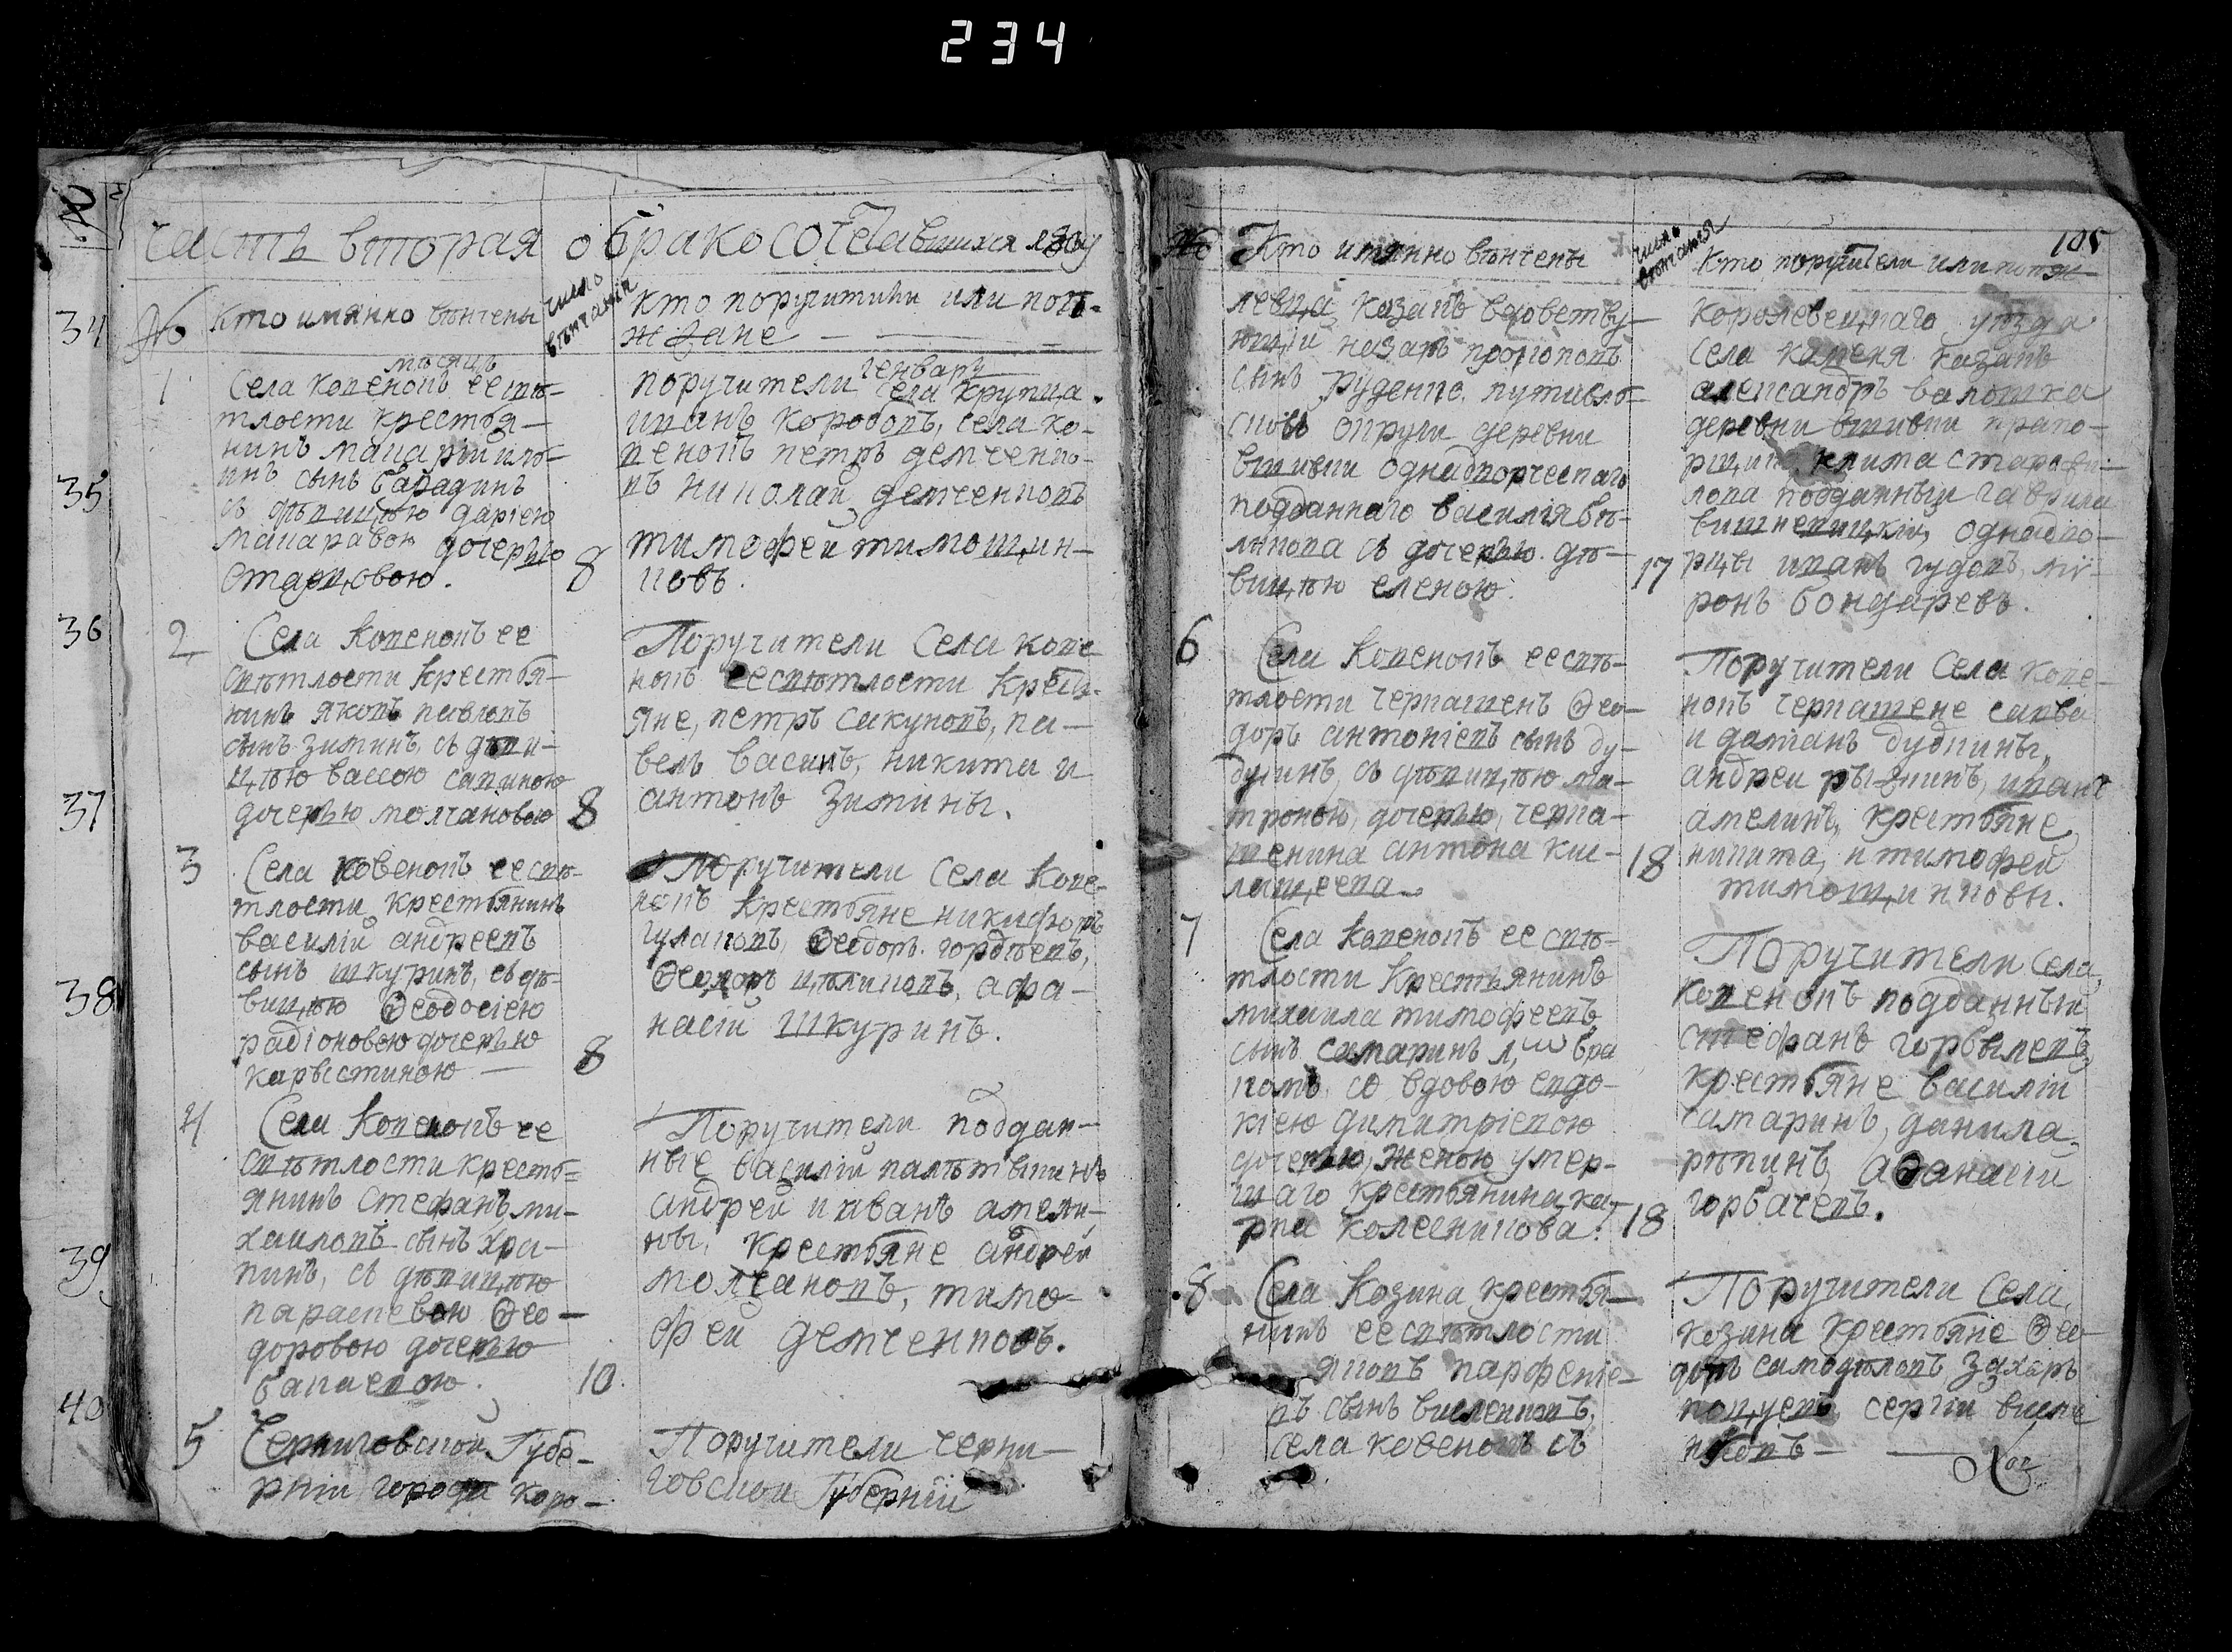 234
часть вторая о бракосочетавшихся
№ Кто имянно венчены
число венчания
кто поручители или поѣ-
жзане
мѣсяцъ генварь
34
35
36
37
38
39
40
1
Села Ковенокъ ее свѣ-
тлости крестья-
нинъ
инъ сынъ
съ дѣвицѣю дарїею
макаравою дочерью
8
поручители села крупца
иванъ коробовъ, села ко-
венокъ петръ демченко-
въ николай демченковъ
тимофей тимощин-
ковъ.
2
Села Ковенокъ ее
свѣтлости крестья-
нинъ яковъ павловъ
сынъ зиминъ, съ дѣви-
цѣю вассою савиною
дочерью молчановою
8
Поручители Села кове
нокъ ее свѣтлости крест-
яне, петръ сакуновъ, па-
велъ васинъ, никита и
антонъ зимины.
3
Села ковенокъ ее свѣ-
тлости крестьянинъ
василїй андреевъ
сынъ шкуринъ, съ дѣ-
вицѣю Ѳеодосїею
радїоновою дочерью
карыстиною
8
Поручители Села Кове-
нокъ крестьяне никифоръ
гулаковъ, Ѳеодоръ гордѣевъ,
Ѳеодоръ цѣликовъ, афа-
насїй шкуринъ.
4
Села Ковенокъ ее
свѣтлости кресть-
янинъ стефанъ ми-
хаиловъ сынъ хра-
пинъ, съ дѣвицѣю
параскевою Ѳео-
доровою дочерью
бакаевою.
10
Поручители поддан-
ные василїй
андрей и иванъ амели-
ны, крестьяне андрей
молчановъ, тимо-
фей демченковъ.
5
Черниговской Губе-
рнїи города коро-
Поручители черни-
говской Губернїи
№ Кто имянно вѣнчены
число вѣнчания
Кто поручители или поѣзж
105
левца казакъ
казакъ прокоповъ
сынъ руденко, путивль-
ской округи деревни
вшивки однадворческаго
подданнаго василїя вѣ-
ликова съ дочерью дѣ-
вицѣю еленою.
17
королевецкаго уѣзда
села камня казакъ
александръ валошка
деревни вшивки прапо-
рщика клима старови-
кова подданный гаврила
вишневицкїй, однадво-
рцы иванъ гудовъ, ми-
ронъ бондаревъ.
6
Села Ковенокъ ее свѣ-
тлости черкашенъ Ѳео-
доръ антонїевъ сынъ ду-
дкинъ, съ дѣвицѣю ма-
троною, дочерью, черка-
шенина антона кис-
лащеева
18
Поручители Села кове-
нокъ черкашене савва
и даміанъ дудкины,
андреи рыжкинъ, иванъ
амелинъ, крестьяне
никита, и тимофей
тимощинковы.
7
Села ковенокъ ее свѣ-
тлости крестьянинъ
михаила тимофеевъ
сынъ самаринъ бра
комъ со вдовою евдо-
кїею димитрїевою
дочерью, женою умер-
шаго крестьянина ка-
рпа колесникова.
18
Поручители села
ковенокъ подданный
стефанъ горбылевъ,
крестьяне василїй
самаринъ, данила
рѣпинъ, аѳанасїй
горбачевъ.
8
Села Козина крестья-
нинъ ее свѣтлости
яковъ парфенїе-
въ сынъ висленковъ,
села ковенокъ съ
Поручители Села
козина крестьяне Ѳео-
доръ самодѣловъ захаръ
сергїй висле
нковъ